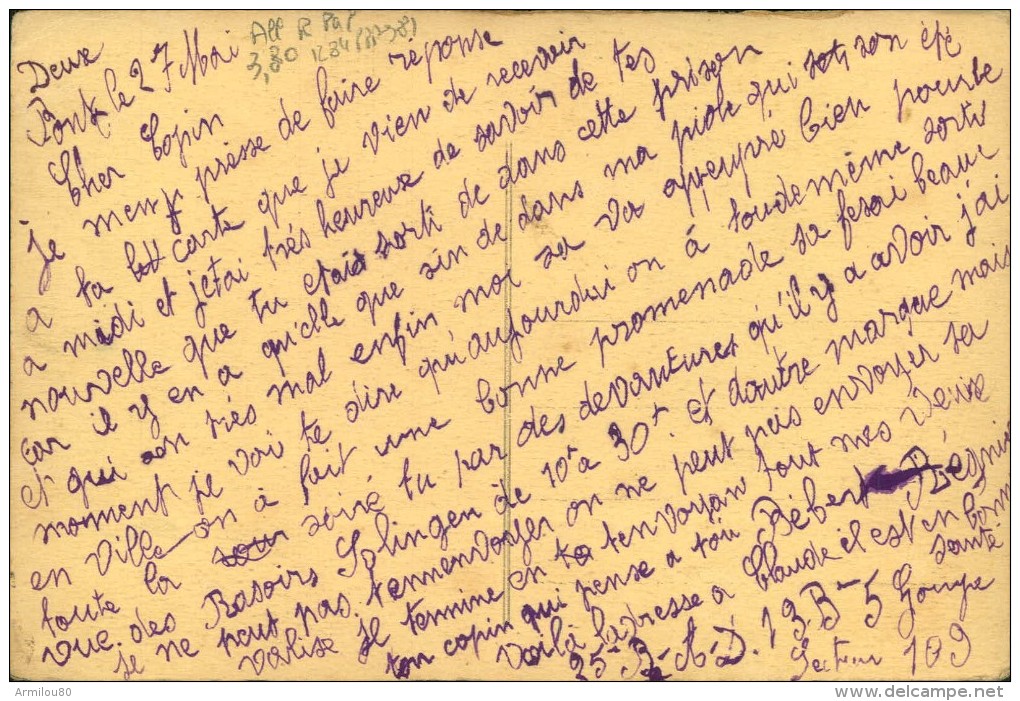 All R Pal
3,80
Deux
Ponts le 27 Mai
Cher Copin
je mempresse de faire réponse
a ta lett carte que je vien de recevoir
a midi et jetai très heureuse de savoir de tes
nouvelle que tu etais sorti de dans cette prison
car il y en a qu'elle que sin de dans ma piole qui
et qui son très mal enfin moi sa va
moment je voi te dire qu'aujourdui on á toudemême sorti
en ville on à fait une bonne promenade sa fesai beauc
toute la soiré tu par des devantures qu'il y a avoir j'ai
vue des Rasoirs Solingen de 10 a 30 et dautre marque mais
je ne peut pas tennenvoyer on ne peut pas envoyer sa
valise je termine en tenvoyan tout mes Vieux
ton copin qui pense a toii Bébert Régnier
Voilà ladresse a Claude il est en bonne
santé
25- B-A-D. 19. B- 5 Goupe
Secteur 109
Armilou80
www.delcampe.net